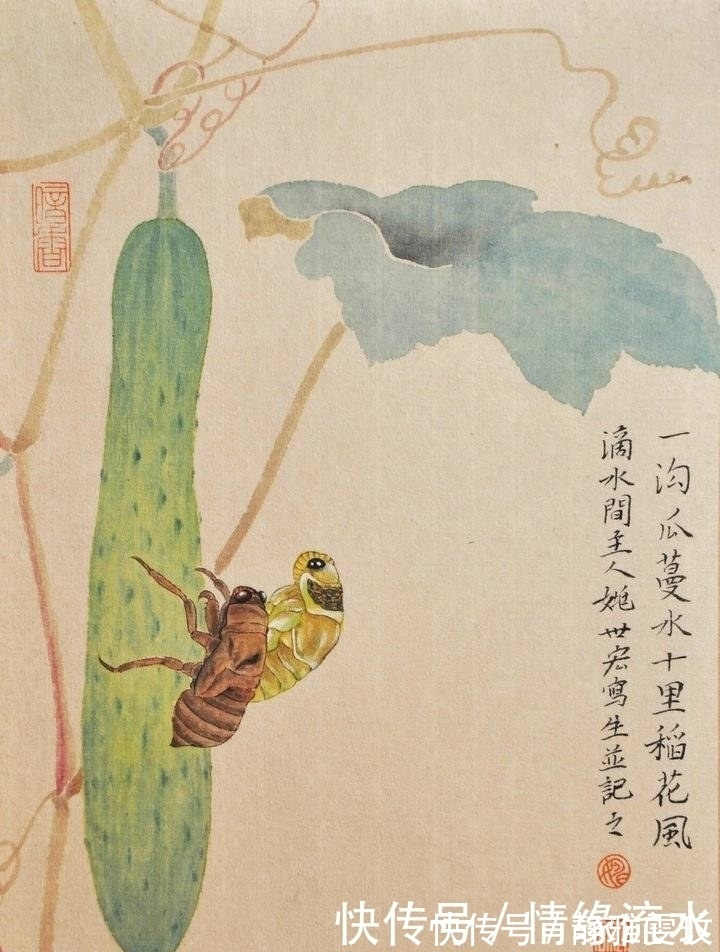 一沟瓜蔓水十里稻花風
滴水間主人姚世宏寫生並記之
快传号 / 情缘流水